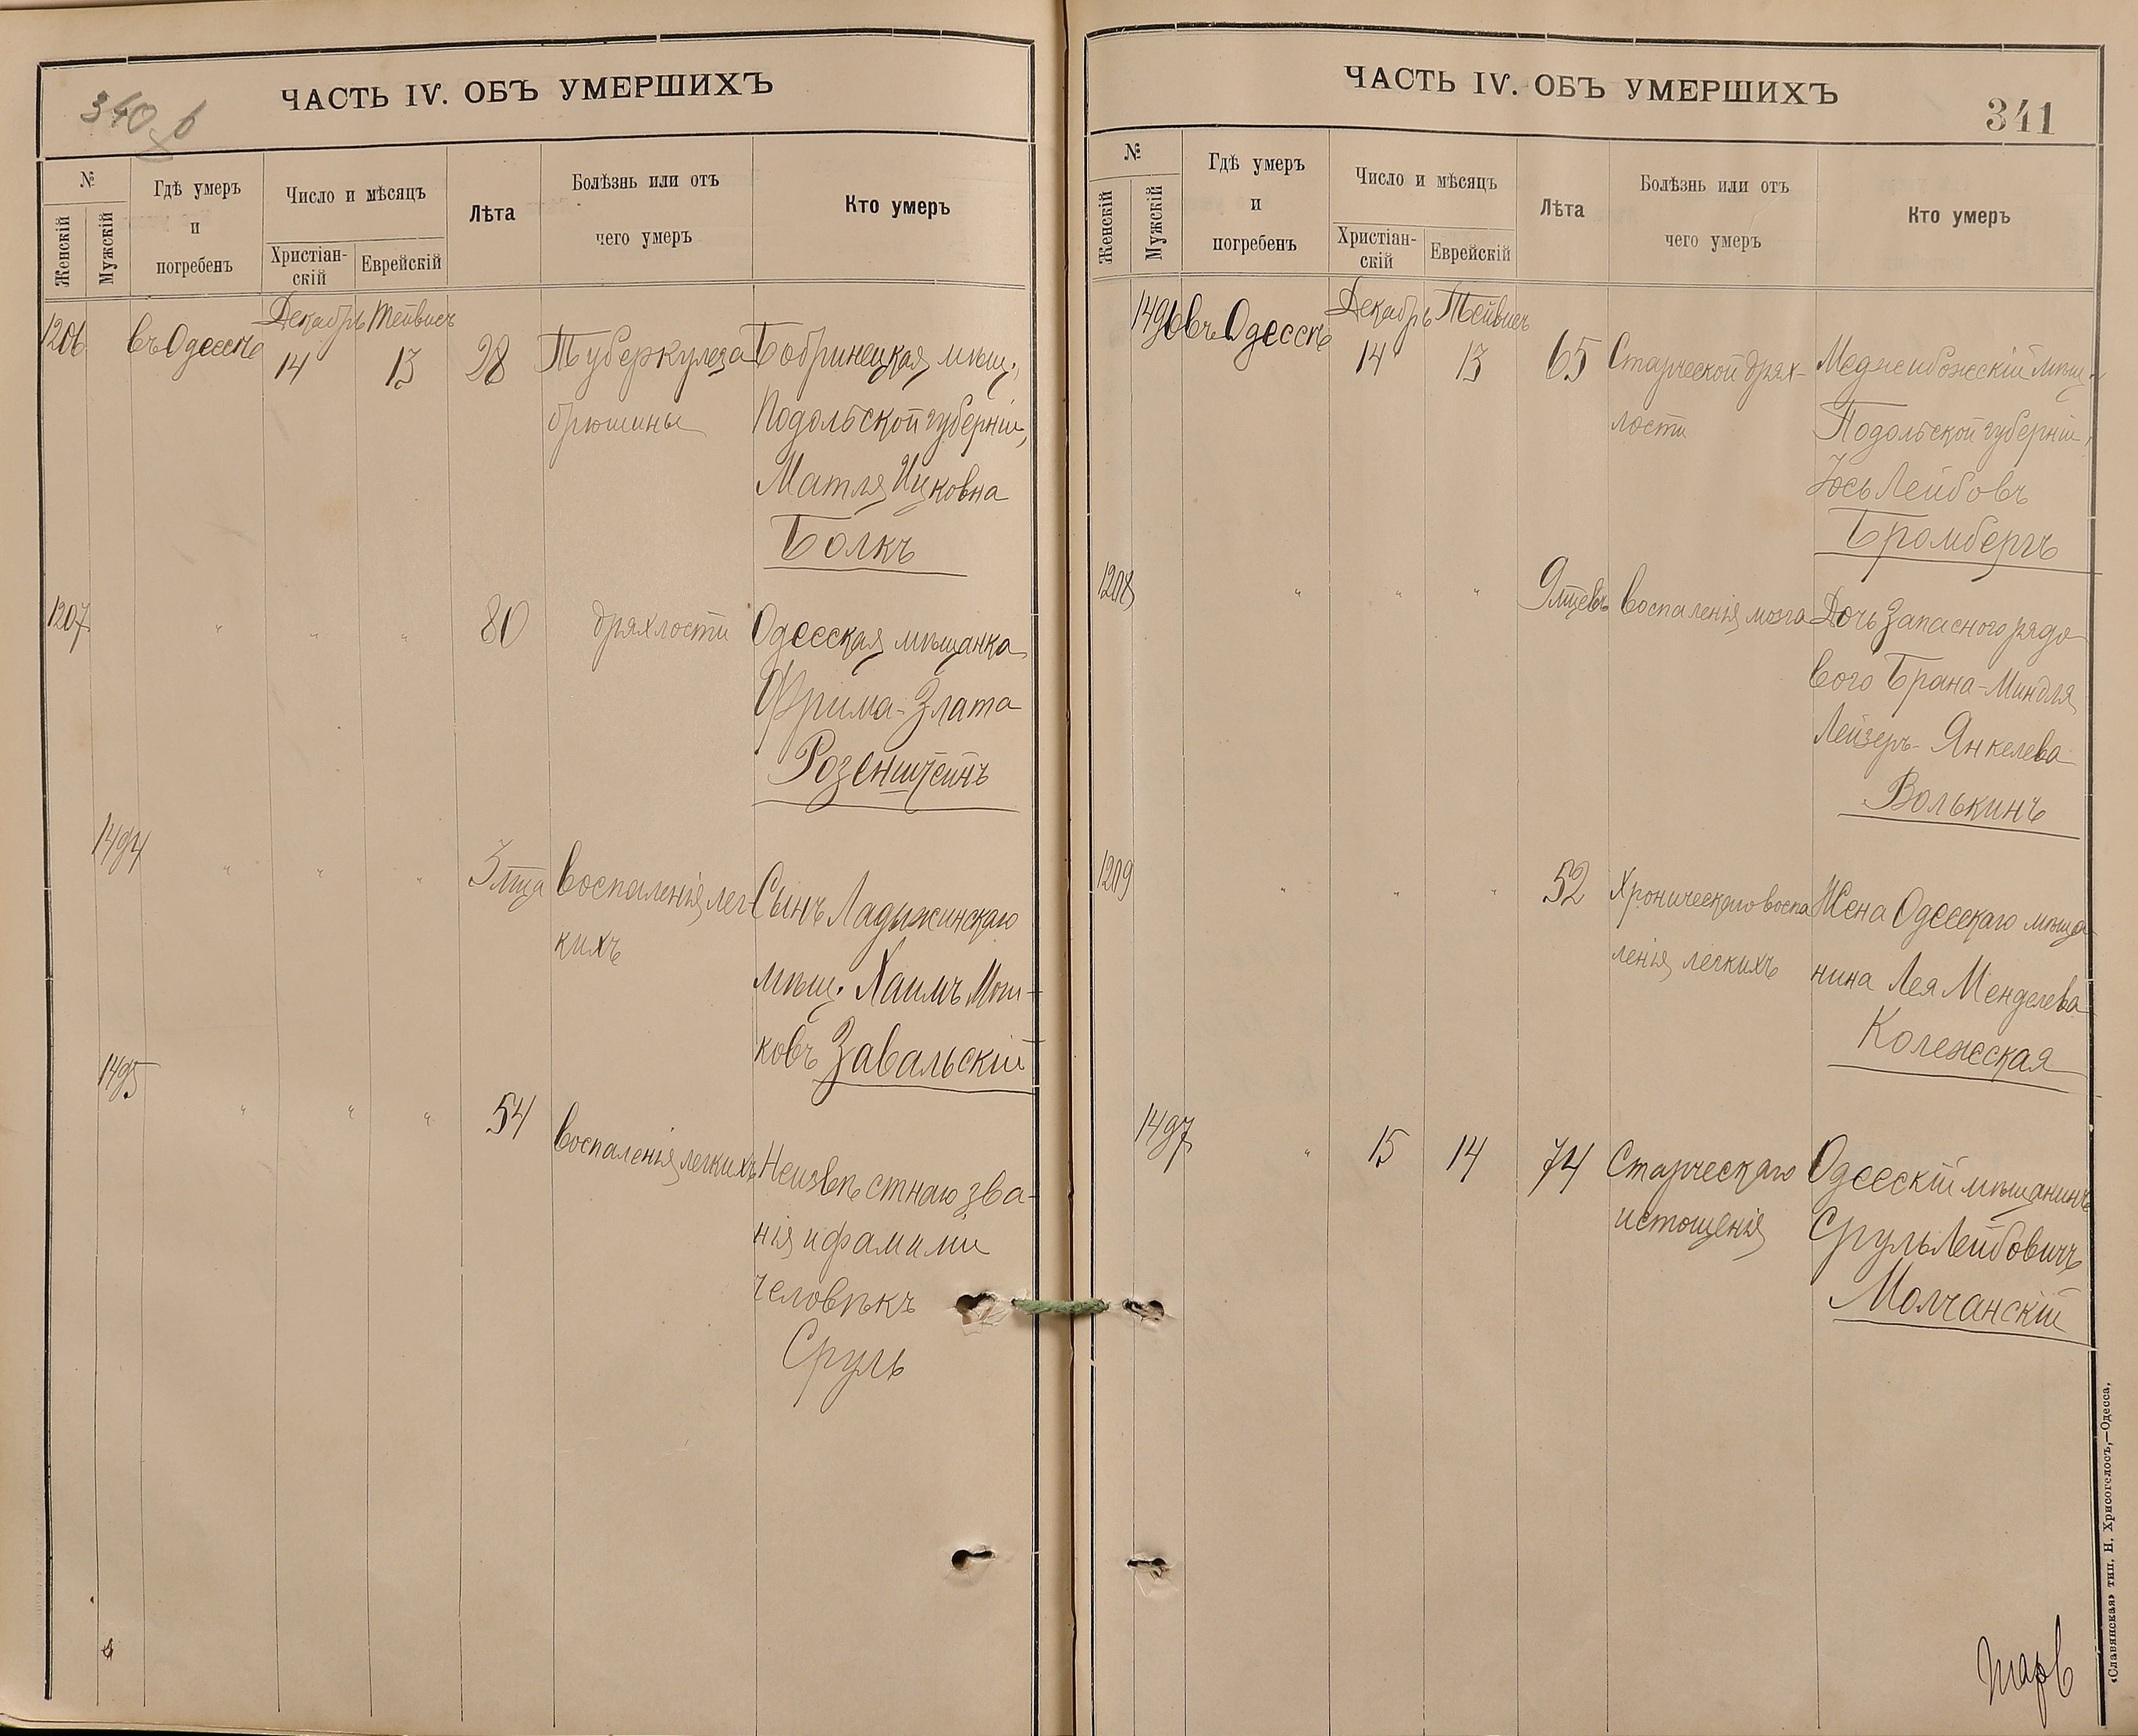 340 б
ЧАСТЬ IV. ОБЪ УМЕРШИХЪ
№
Женскій
Мужскій
Гдѣ умеръ
и
погребенъ
Число и мѣсяцъ
Христіан-
скій
Еврейскій
Лѣта
Болѣзнь или отъ
чего умеръ
Кто умеръ
1206
въ Одессѣ
Декабрь
14
Тейвись
13
28
Туберкулеза
брюшины
Бобринецкая мѣщ.,
Подольской губерніи,
Матля Ицковна
Болкъ
1207
"
"
"
80
дряхлости
Одесская мѣщанка
Фрима-Злата
Розенштейнъ
1494
"
"
"
3 лѣта
воспаленія лег-
кихъ
Сынъ Ладыжинскаго
мѣщ. Хаимъ Мош-
ковъ Завальскій
1495
"
"
"
54
воспаленія легкихъ
Неизвѣстнаго зва-
нія и фамиліи
человѣкъ
Сруль
ЧАСТЬ IV. ОБЪ УМЕРШИХЪ
341
№
Женскій
Мужскій
Гдѣ умеръ
и
погребенъ
Число и мѣсяцъ
Христіан-
скій
Еврейскій
Лѣта
Болѣзнь или отъ
чего умеръ
Кто умеръ
1496
въ Одессѣ
Декабрь
14
Тейвись
13
65
Старческой дрях-
лости
Меджибожскій мѣщ.
Подольской губерніи,
Іось Лейбовъ
Бромбергъ
1208
"
"
"
9 мѣсцевъ
воспаленія мозга
Дочь запасного рядо
вого Брана-Миндля
Лейзеръ-Янкелева
Волькинъ
1209
"
"
"
52
Хроническаго воспа
ленія легкихъ
Жена Одесскаго мѣща
нина Лея Менделева
Колежская
1497
"
15
14
74
Старческаго
истощенія
Одесскій мѣщанинъ
Сруль Лейбовичъ
Молчанскій
«Славянская» тип. Н. Хрисогелосъ,—Одесса.